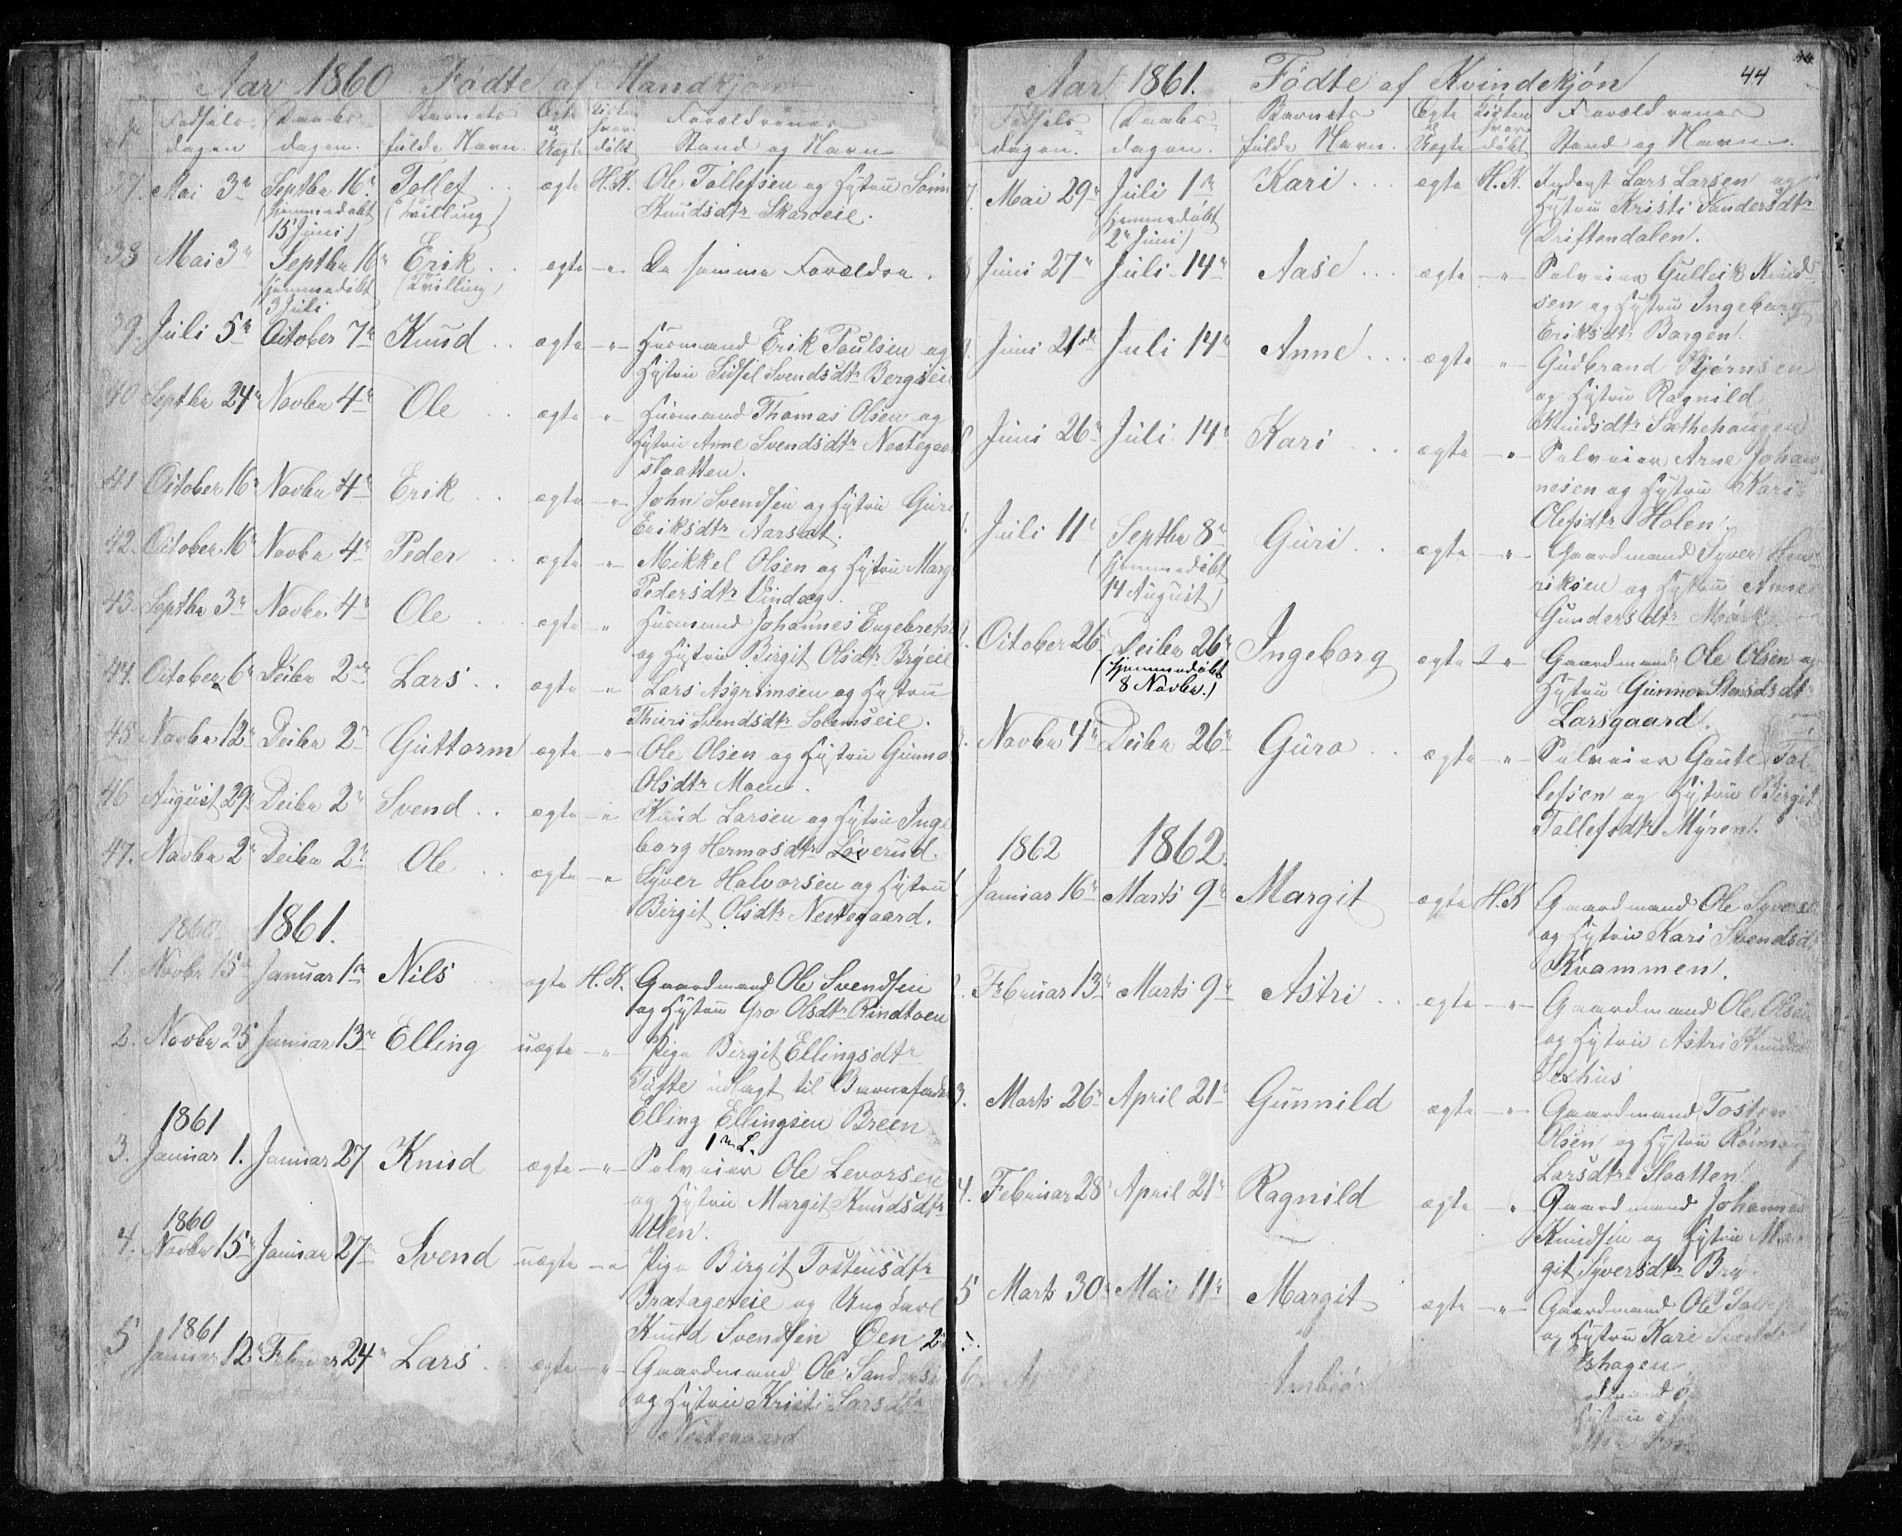 Aar 1860 Fødte af Mandkjøn
№ Fødsels- dagen Daabs- dagen. Barnets fulde Navn. Ægte el Uægte Kirken hvor døbt Forældrenes Stand og Navn
37. Mai 3de Septbr 16de Tollef .. ægte H.K. Ole Tollefsen og Hustru
(hjemmedøbt (Tvilling) Knudsdtr Skarveie.
15 Juni)
38 Mai 3de Septbr 16de Erik .. ægte -"- De samme Forældre.
hjemmedøbt (Tvilling)
3 Juli
39. Juli 5te October 7de Knud .. ægte -"- Husmand Erik Poulsen og
Hustru Sidsel Svendsdtr Bergseie
40 Septbr 24de Novbr 4de Ole .. ægte -"- Husmand Thomas Olsen og
Hustru Anne Svendsdtr Nestegaard
slaatten.
41 October 16de Novbr 4de Erik .. ægte -"- John Svendsen og Hustru Guri
Eriksdtr Aarsat.
42. October 16de Novbr 4de Peder .. ægte -"- Mikkel Olsen og Hustru Marg
Pedersdtr Vindeg.
43. Septbr 3de Novbr 4de Ole .. ægte -"- Husmand Johannes Engebretse
og Hustru Birgit Olsdtr Bryeie
44. October 6te Deibr 2den Lars .. ægte -"- Lars Asgrimsen og Hustru
Thuri Svendsdtr Solemseie.
45 Novbr 12te Deibr 2den Guttorm ægte -"- Ole Olsen og Hustru Gunno
Olsdtr Moen.
46 August 29de Deibr 2den Svend .. ægte -"- Knud Larsen og Hustru Inge
borg Hermosdtr Løverud.
47. Novbr 2den Deibr 2den Ole .. ægte -"- Syver Halvorsen og Hustru
Birgit Olsdtr Nestegaard.
1860 1861.
1. Novbr 15de Januar 1ste Nils .. ægte H.K. Gaardmand Ole Svendsen
og Hustru Gro Olsdtr Rindtoen
2. Novbr 25 Januar 13de Elling uægte -"- Pige Birgit Ellingsdtr
Tufte udlagt til Barnefader
Elling Ellingsen Breen
1861 1ste L.
3. Januar 1. Januar 27 Knud ægte -"- Selveier Ole Levorsen
og Hustru Margit Knudsdtr
Ulen.
1860
4. Novbr 15de Januar 27de Svend uægte -"- Pige Birgit Tostensdtr
Brætageteie og Ung Karl
Knud Svendsen Øen 2
1861
5 Januar 12te Februar 24de Lars .. ægte -"- Gaardmand Ole Sanderse
og Hustru Kristi Larsdtr
Nestegaard
44
Aar 1861. Fødte af Kvindekjøn
Fødsels- dagen. Daabs- dagen. Barnets fulde Navn. Ægte el Uægte Kirken hvor døbt Forældrenes Stand og Navn.
7. Mai 29de Juli 1ste Kari .. ægte H.K. Inderst Lars Larsen og
hjemmedøbt Hustru Kristi Sandersdtr
2den Juni) Driftendalen.
Juni 27de Juli 14de Aase ... ægte -"- Selveier Gulleik Knud-
sen og Hustru Ingeborg
Eriksdtr Børgen.
Juni 21de Juli 14de Anne ... ægte -"- Gudbrand Bjørnsen
og Hustru Ragnild
Knudsdtr Sathehaugen
Juni 26de Juli 14de Kari ... ægte -"- Selveier Arne Johan
nesen og Hustru Kari
Olefsdtr Holen.
Juli 11te Septbr 8de Guri .. ægte -"- Gaardmand Syver Hen-
(hjemmedøbt riksen og Hustru Anne
14 August) Gundersdtr
October 26 Deibr 26de Ingeborg ægte -"- Gaardmand Ole Olsen og
(hjemmedøbt Hustru Gunnor
8 Novbr.) Larsgaard.
Novbr 4de Deibr 26de Guro .. ægte -"- Selveier Gaute Tol-
lefsen og Hustru Birgit
Tollefsdtr Myren.
1862 1862.
Januar 16de Marts 9de Margit ægte H.K Gaardmand Ole Syverse
og Hustru Kari Svendsd
Kvammen.
Februar 13de Marts 9de Astri .. ægte -"- Gaardmand Ole Olsen
og Hustru Astri Knuds
Sexhus
3. Marts 26de April 21de Gunnild ægte -"- Gaardmand Tosten
Olsen og Hustru
Larsdtr Slaatten
4. Februar 28de April 21de Ragnild ægte -"- Gaardmand Johannes
Knudsen og Hustru Mar
git Syversdtr Bry.
5 Marts 30de Mai 11te Margit ægte -"- Gaardmand Ole
og Hustru Kari
shagen
6.
Hustru